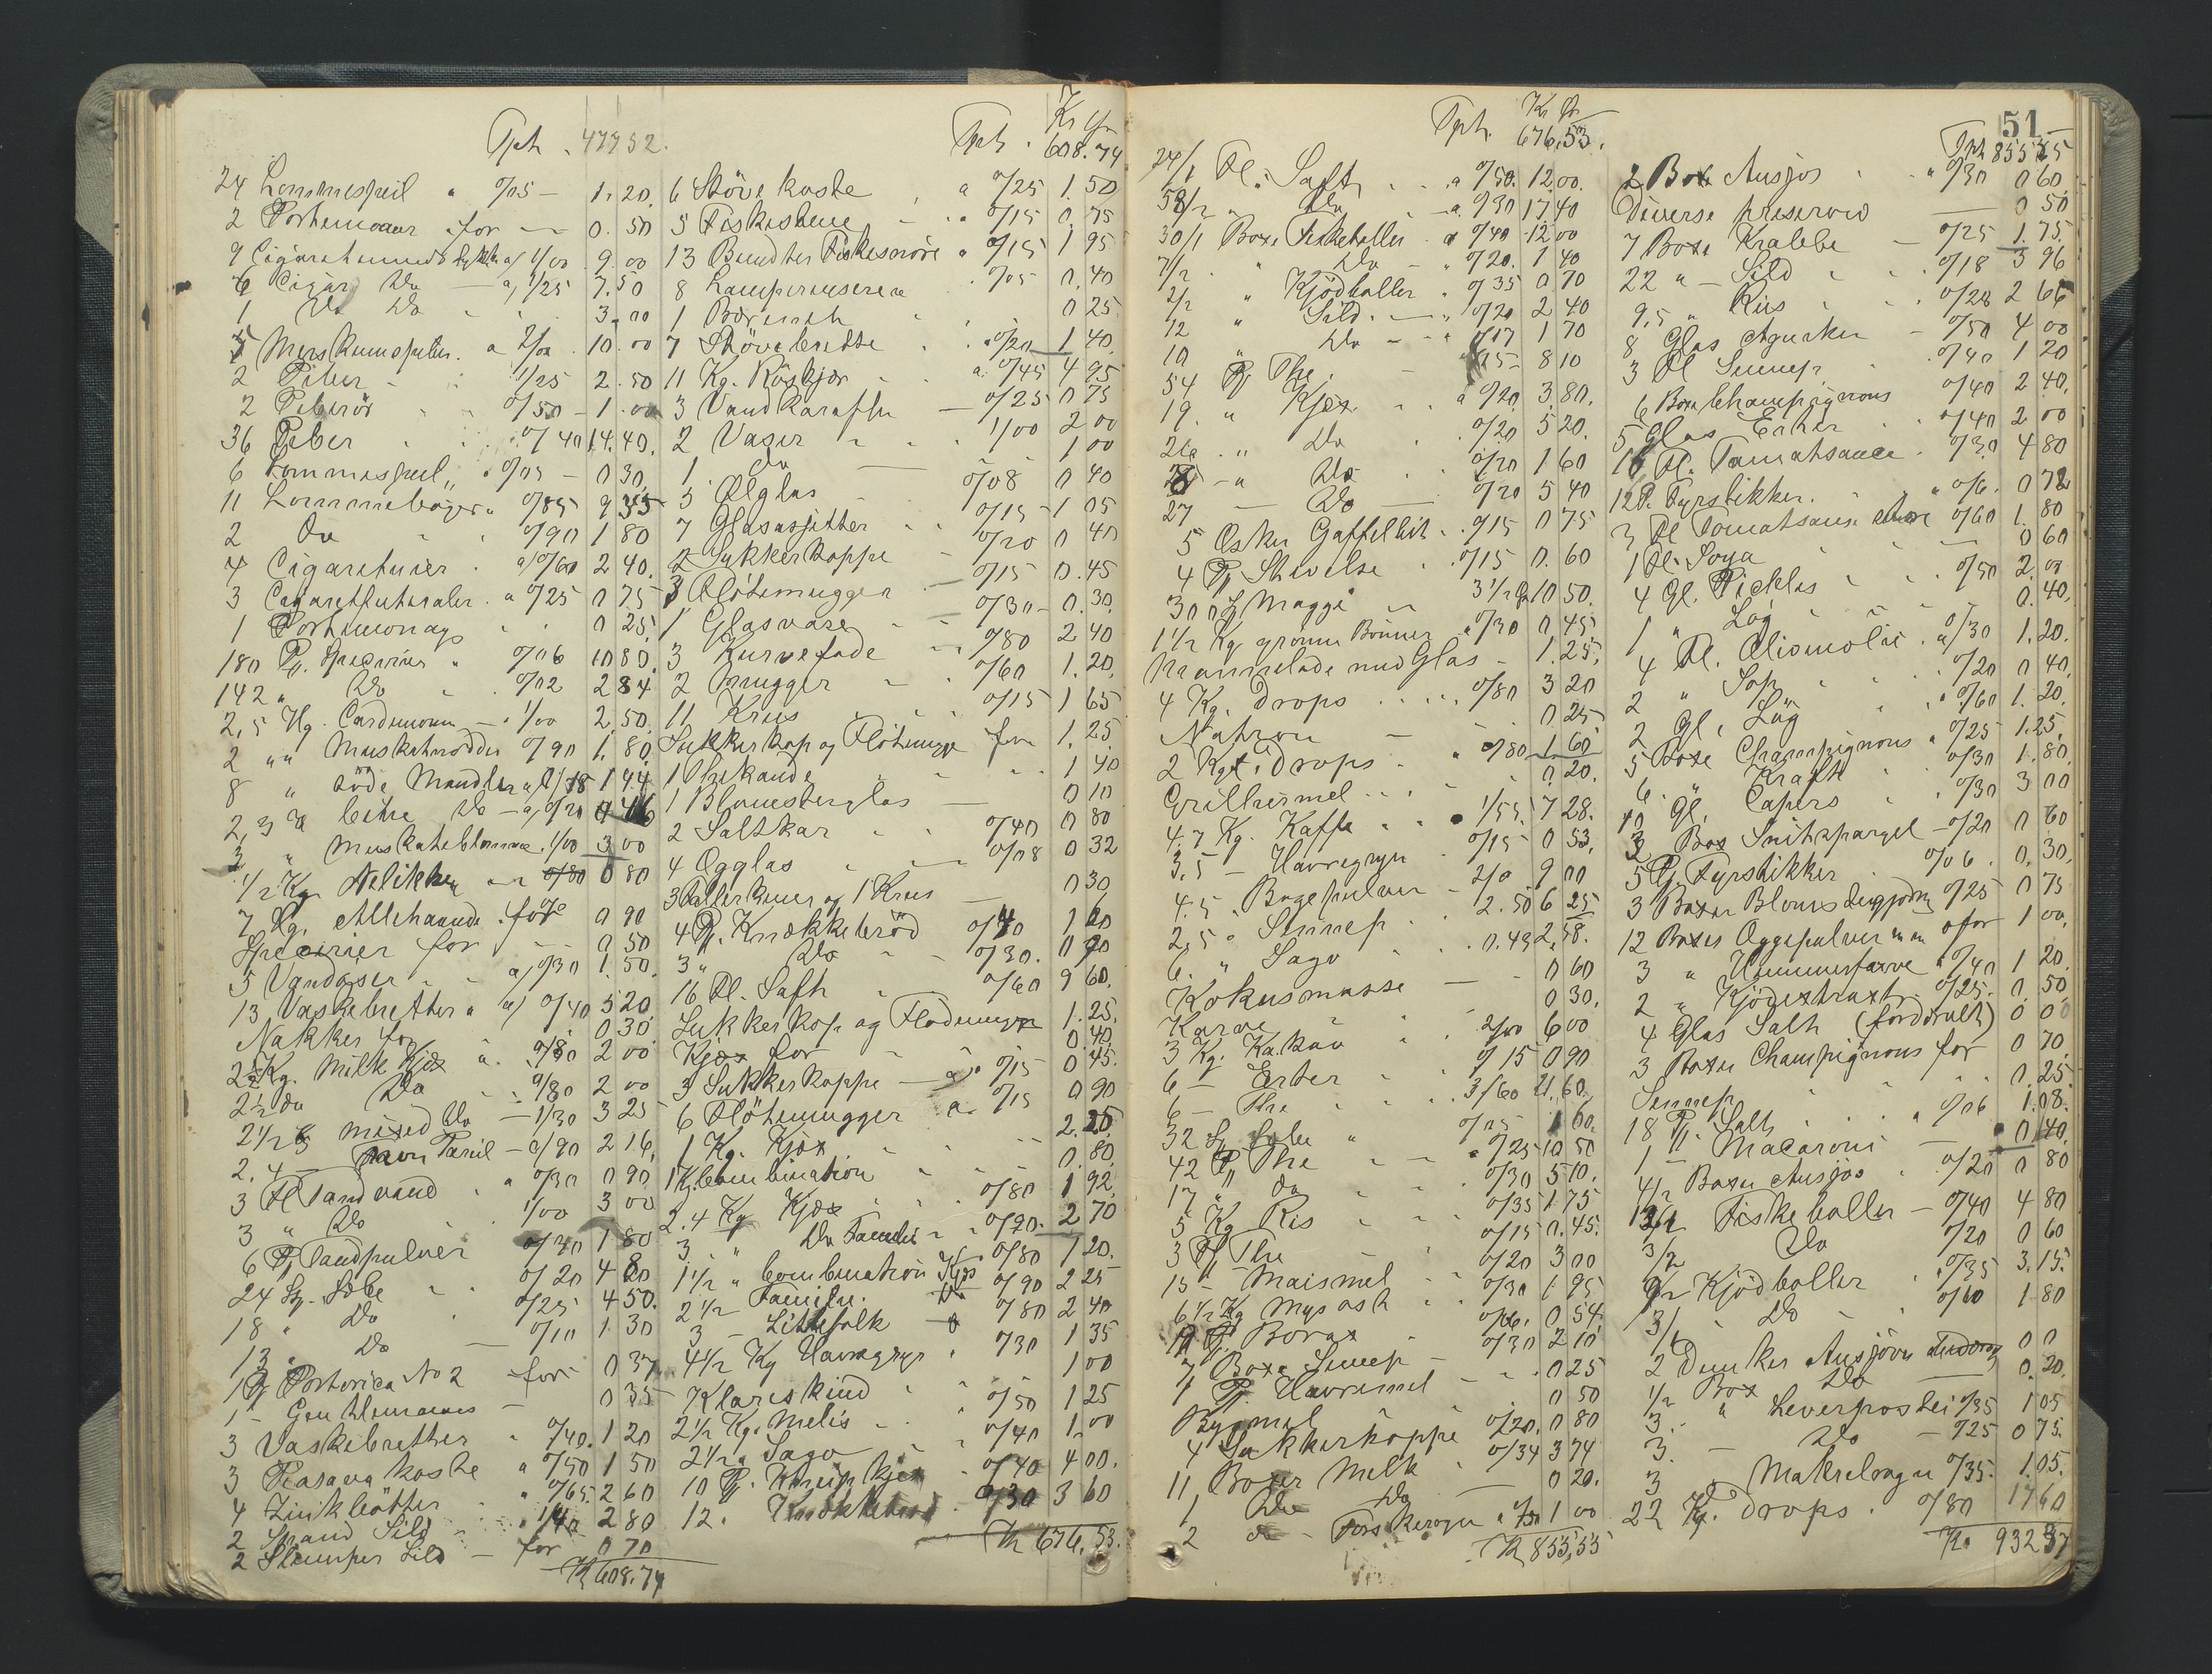 Tpt. 47752.
24 Lommespeil a 0/05 - 1.20.
2 Portemonaer for - 0.50
9 Cigaretmundstykker a/ 1/00 9.00
6 Cigar Do a/ 1/25 7.50
1 Do Do 3.00
5 Merskumspiber. a 2/00 10.00
2 Piber - 1/25 2.50
2 Piberör 0/50 - 1.00
36 Piber 0/40 14.40.
6 Lommespeil " 0/05 - 0 30.
11 Lommebøger a 0/85 9 35
2 Do 0/90 1 80
4 Cigaretuier a/0/60 2 40.
3 Cigaretfutteraler a 0/25 0 75
1 Portemonay 0 25.
180 Pk. Specerier " 0/06 10 80.
142 " Do 0/02 2 84
2,5 Hg. Cardemom - 1/00 2 50.
2 " " Muskatnødder 0/90 1.80.
8 " söde Mandler a/ 0/18 1 44
2,3 " bitre Do - a/ 0/20 0 46
3 " Muskateblomme. 1/00 3 00
1/2 Kg Nelikker 0/80 0 80
7 Hg. Allehaande for 0 90
Specerier for 0 50
5 Vandøser a/ 0/30 1.50.
13 Vaskebretter a a/ 0/40 5 20.
Nøkker for 0 30.
2 1/2 Kg. Milk Kjex a. 0/80 2 00.
2 1/2 Do Do 0/80 2 00
2 1/2 mixed Do - 1/30 3 25
2.4 Pavil - 0/90 2 16.
3 Fl Tandvand a 0/30 0 90.
3 " Do 1/00 3 00
6 Pk Tandpulver 0/30 1 80
24 St. Sæbe 0/20 4 80
18 " Do 0/25 4 50.
13 " Do 0/10 1.30
1 Pk Portorico No 2 for 0 37
1 - Gentlemans - 0 35
3 Vaskebretter 0/40. 1 20
3 Piasava koste a 0/50 1 50
4 Zinkbötter 0/65. 2 60
2 Spand Sild 1/40 2 80
2 Slumper Sild - for 0 70
Kr 608.74
Tpt. Kr Ør 608.74
6 Støvekoste a 0/25 1.50
5 Fiskestene 0/15 0.75
13 Bundter Fiskesnöre a 0/15 1 95
8 Lamperensere a 0/05 0.40
1 Børinch 0 25
7 Støvebrette 0/20 1 40.
11 Kg. Röskjær a. 0/45 4 95
3 Vandkarafler - 0/25 0 75
2 Vaser 1/00 2 00
1 Do 1 00
5 Ølglas - 0/08 0 40
7 Glasasjetter 0/15 1 05
2 Sukkerkoppe - 0/20 0 40
3 Flötemugger 0/15 0.45
1 Glasvase 0/30 - 0.30.
3 Kurvefade 0/80 2 40
2 Mugger 0/60 1.20.
11 Krus 0/15 1 65
Sukkerkop og Flötemugge for 1.25.
1 Thekande 1 40
1 Blomsterglas 0 10
2 Saltkar 0/40 0 80
4 Ægglas 0/08 0 32
3 Tallerkener og 1 Krus 0 30
4 Pk. Knækkebrød 0/30 1 20
3 " Do 0/30. 0 90
16 Fl. Saft 0/60 9 60.
Sukkerkop og Flødemugge 1.25.
Kjex for 0.40.
3 Sukkerkoppe 0/15 0.45.
6 Flötemugger a. 0/15 0 90
1 Kg. Kjex 2.25.
1 K. Combination 0.80.
2.4 Kg Kjex 0/80 1 92.
3 " Do Familie 0/90. 2 70
1 1/2 " Combination Kjex 0/80 1 20.
2 1/2 Familie. Do 0/90 2 25
3 - Littlefolk 0/80 2 40
4 1/2 Kg Havregryn. 0/30 1 35
Klareskind 1 00
2 1/2 Kg. Melis 0/50 1 25
2 1/2 a Sago 0/40 1.00
10 Pk. Kneip kjex 0/40 4 00.
12. Knækkebrød 0/30 3 60
Kr 676.53.
Tpt. Kr Ør 676,53.
24/1 Fl. Saft a 0/50. 12 00.
58/2 " Do a 0/30 17.40
30/1 Boxe Fiskeboller a 0/40 12 00
7/2 " Do 0/20. 1 40
2/2 " Kjödboller 0/35 0 70
12 " Sild. 0/20 2 40
10 " Do 0/17 1 70
54 Pk The. 0/15 - 8 10
19. " Kjex a 0/20. 3.80.
26. " Do 0/20 5 20.
8 - a Do 0/20 1 60
27 - Do 0/20 5 40
5 Æsker Gaffelbit. 0/15 0 75
4 Pk Stivelse 0/15 0.60
300 g Maggi 3 1/2 10 50.
1 1/2 Kg grønne Bönner a 0/30 0 45
Marmelade med Glas - 1.25.
4 Kg. Drops 0/80 3 20
Natron 0 25
2 Kg. Drops 0/80 1 60
Grillermel 0 20.
4.7 Kg. Kaffe 1/55 7 28.
3.5 - Havregryn 0/15 0 53.
4.5 " Bagepulver - 2/0 9 00
2,5 " Sennep 2.50 6 25
6. " Sago 0.43 2,58.
Kokusmasse 0 60
Karve 0 30.
3 Kg. Kakao 2/00 6 00
6 - Erter 0/15 0 90
6 - The 3/60 21.60.
32 St. Sæbe " 0/05 1 60.
42 Pk The 0/25 10 50
17 " Do 0/30 5 10.
5 Kg Ris 0/35 1 75
3 Pk The 0/15 0.45.
15 - Maismel 0/20 3 00
6 1/2 Kg Mysost 0/30 1 95
9 Pk. Borax 0/06. 0 54.
7 Boxe Sennep 0/30 2 10
1 Pk. Havremel 0 25
Bygmel 0 50
4 Sukkerkoppe 0/20. 0 80
11 Boxer Melk 0/34 3 74
1 Do Do 0 20.
2 do - Torskerogn 1 00
Kr 855,55
51
Tpt 855 55
2 Box Ansjos 0/30 0 60.
Diverse hresørved 0 50
7 Boxe Krabbe 0/25 1.75.
22 " Sild 0/18 3 96
9,5 " Ris 0/28 2 66
8 Glas Agurker 0/50 4 00
3 Fl Sennep 0/40 1 20
6 Boxe Champignons 0/40 2 40.
5 Glas Erter 0/40 2 00
16 Fl. Tomatsauce 0/30 4 80
12 Pk. Fyrstikker. 0/6. 0 72
3 Fl Tomatsaus større 0/60 1. 80
1 Fl. Soya 0 60
4 Gl. Pickles 0/50 2.00
1 " Løg 0.40.
4 Fl. Olivenolie a/30 1.20.
2 " Sop 0/20 0 40.
2 Gl. Løg 0/60 1.20.
5 Boxe Champignons 0/25 1.25.
6. " Kraft 0/30 1.80.
10 Gl. Capers 0/30 3 00
3 Box Snitspargel - 0/20 0 60
5 Pk Fyrstikker 0/06. 0.30.
3 Boxer Blomstergjødn. 0/25 0 75
12 Boxer Æggepulver for 1 00.
3 " Hummerfarve 0/40 1 20.
2 " Kjödextrakt 0/25. 0.50.
4 Glas Salt (fordærvet) 0 00
3 Boxer Champignons for 0 70.
Sennep 0.25.
18 Pk. Salt 0/06 1.08.
1 - Macaroni 0 40.
4/2 Boxer Ansjos 0/20 0 80
12/1 Fiskeboller - 0/40 4 80
3/2 Do 0/20 0 60
9/2 Kjödboller 0/35 3.15.
3/1 Do 0/60 1.80
2 Dunker Ansjovis 0 0
1/2 Box Do 0.20.
3. " Leverpostei 0/35 1 05
3. - Do - 0/25 0 75.
3 " Makrelrogn 0/35. 1.05.
22 Kg. Drops. 0/80 17 60
Kr. 932 37